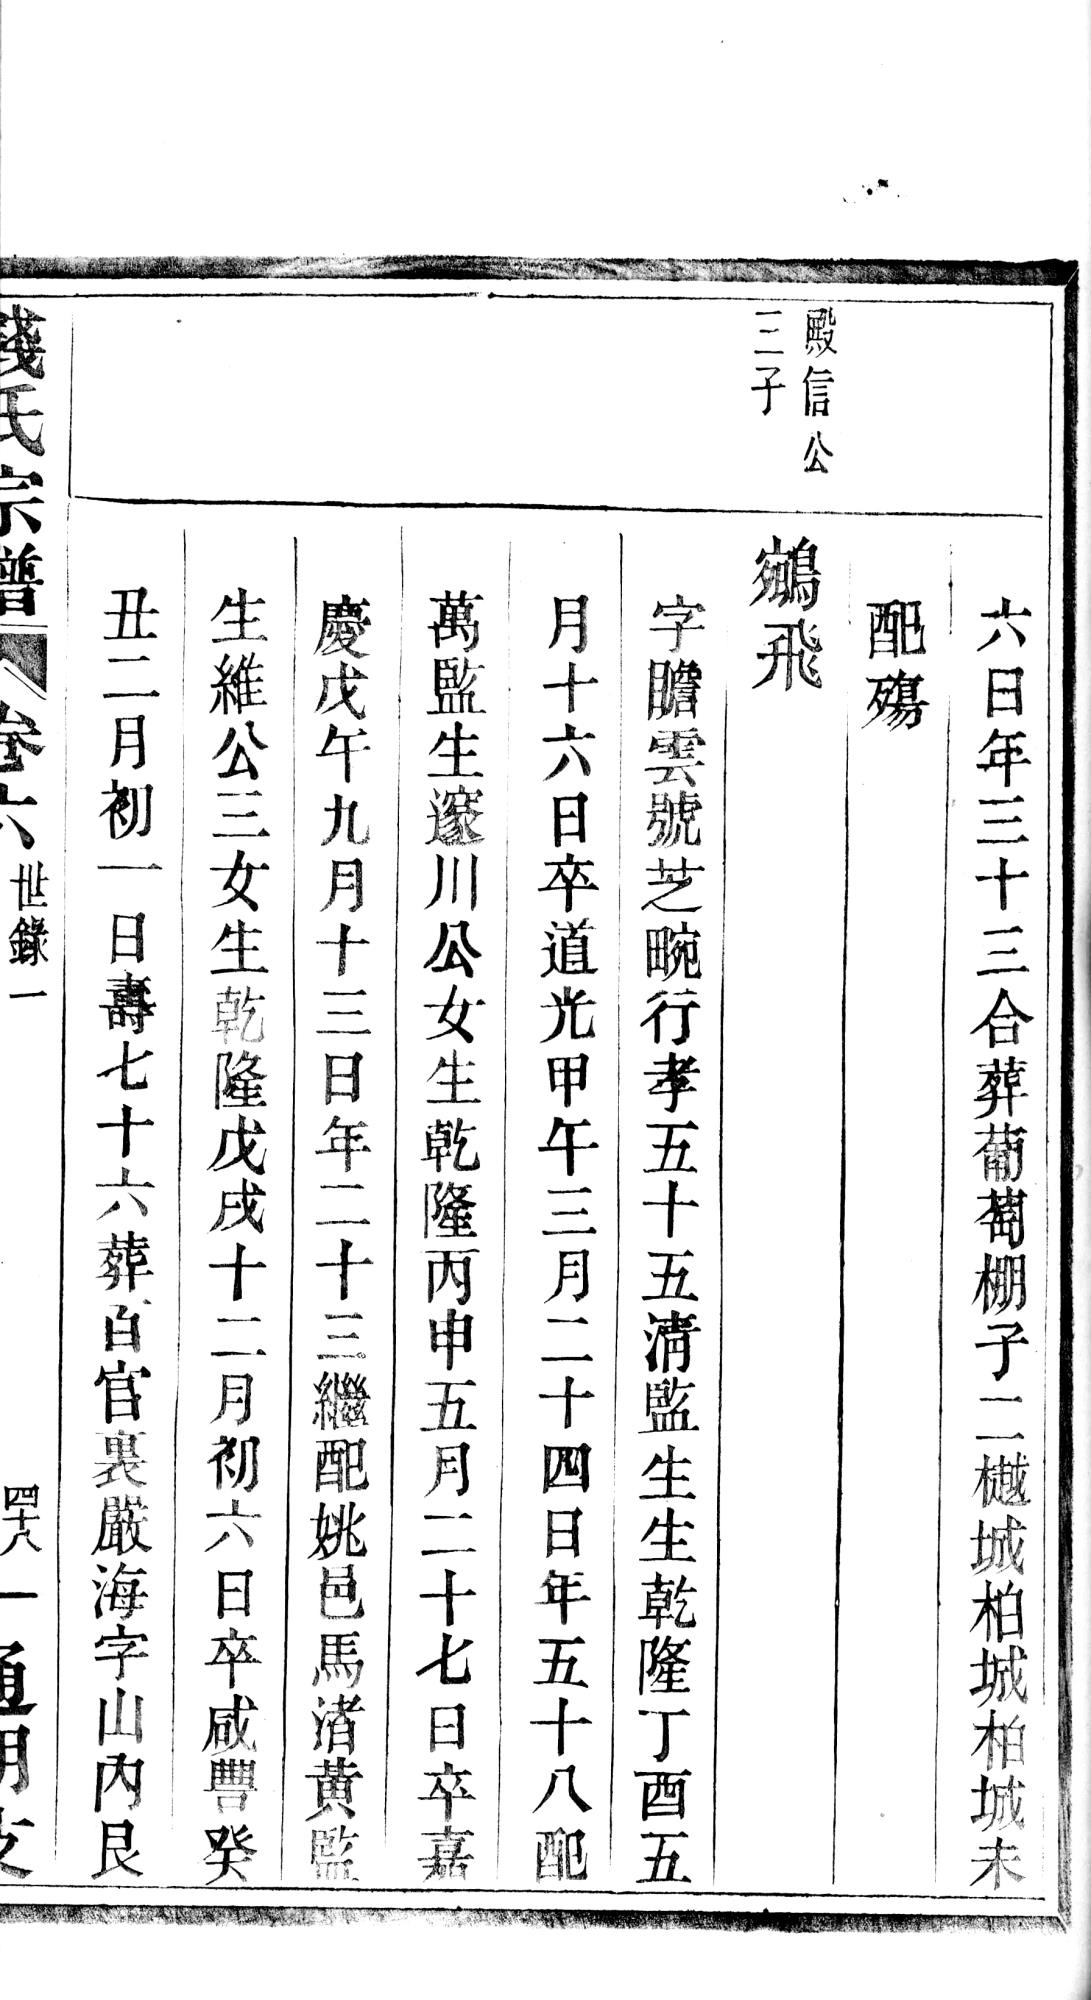 六日年三十三合葬葡萄棚子二樾城柏城柏城未
配殤
殿信公
三子
鵷飛
字瞻雲號芝畹行孝五十五清監生生乾隆丁酉五
月十六日卒道光甲午三月二十四日年五十八配
萬監生邃川公女生乾隆丙申五月二十七日卒嘉
慶戊午九月十三日年二十三繼配姚邑馬渚黃監
生維公三女生乾隆戊戌十二月初六日卒咸豐癸
丑二月初一日壽七十六葬百官裏嚴海字山內艮
錢氏宗譜
卷六
世錄一
四十八
通明支